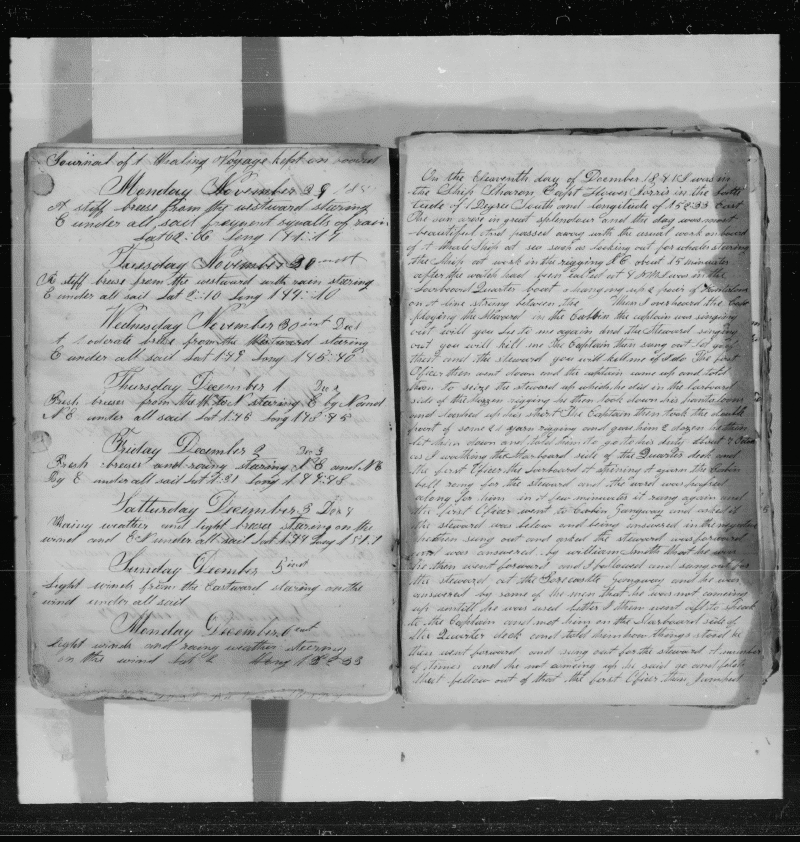 Journal of A Whaling Voyage kept on board
Monday November 29
A stiff breese from the westward staring
E under all sail frequent squalls of rain
Lat 02:06 Long 141:17
Tuesday November 30
A stiff breese from the westward with rain staring
E under all sail Lat 2:10 Long 144:10
Wednesday November 30 inst Dec 1
A moderate brese from the Westward staring
E under all sail Lat 1:49 Long 145:40
Thursday Decmber 1 Dec 2
Fresh breses from the staring E by N and
N E under all sail Lat 1:45 Long 148:45
Friday Decmber 2 Dec 3
Fresh breses and rainy staring N E and N E
By E under all sail Lat 1:31 Long 149:48
Satturday Decmber 3 Dec 4
Rainy weather and light breses staring on the
wind and E N under all sail Lat 1:44 Long 151:1
Sunday Decmber 5 inst
Light winds from the Eastward staring on the
wind under all sail
Monday Decmber 6 inst
Light winds and rainy weather steering
on the wind Lat Long 152:33
On the Eleventh day of Decmber 1841 I was in
the Ship Sharon Capt Howes Norris in the Latti
tude of 1 Degre South and longitude of 15:33 East
The sun arose in great splendour and the day was most
beautiful and passed away with the usual work on board
of A Whale Ship at sea such as looking out for whales staring
the Ship at work in the rigging &C about 15 minutes
after the watch had ben caled at 4 P M I was in the
Starboard Quarter boat a hanging up a pair of Pantaloons
on A line strung between the When I overheard the Capt
floging the Steward in the Cabbin the captain was singing
out will you Lie to me again and the Steward singing
out you will kill me the Captain then sung out let go
that and the steward you will kill me if I do The first
Oficer then went down and the captain came up and told
him to seize the steward up which he did in the larboard
side of the Mizzen rigging he then took down his pantaloons
and turned up his shirt The Captain then took the double
part of some yarn rigging and gave him 2 dozen he then
let him down and told him to go to his duty about 7 Oclock
as I walking the Starboard side of the Quarter deck and
the first Oficer the Larboard A spining A yarn the Cabin
bell rang for the steward and the word was passed
along for him in A few minuites it rang again and
the first Oficer went to Cabin Gangway and asked if
the steward was below and being answered in the negative
he then sung out and asked the steward was forward
and was answered by William Smith that he was
he then went forward and I followed and sung out for
the steward at the Forecastle Gangway and he was
answered by some of the men that he was not coming
up untill he was used better I then went aft to speak
to the Captain and met him on the Starboard side of
the Quarter deck and told him how things stood he
then went forward and sung out for the steward A number
of times and he not coming up he said go and fetch
that fellow out of that the first Oficer then jumped